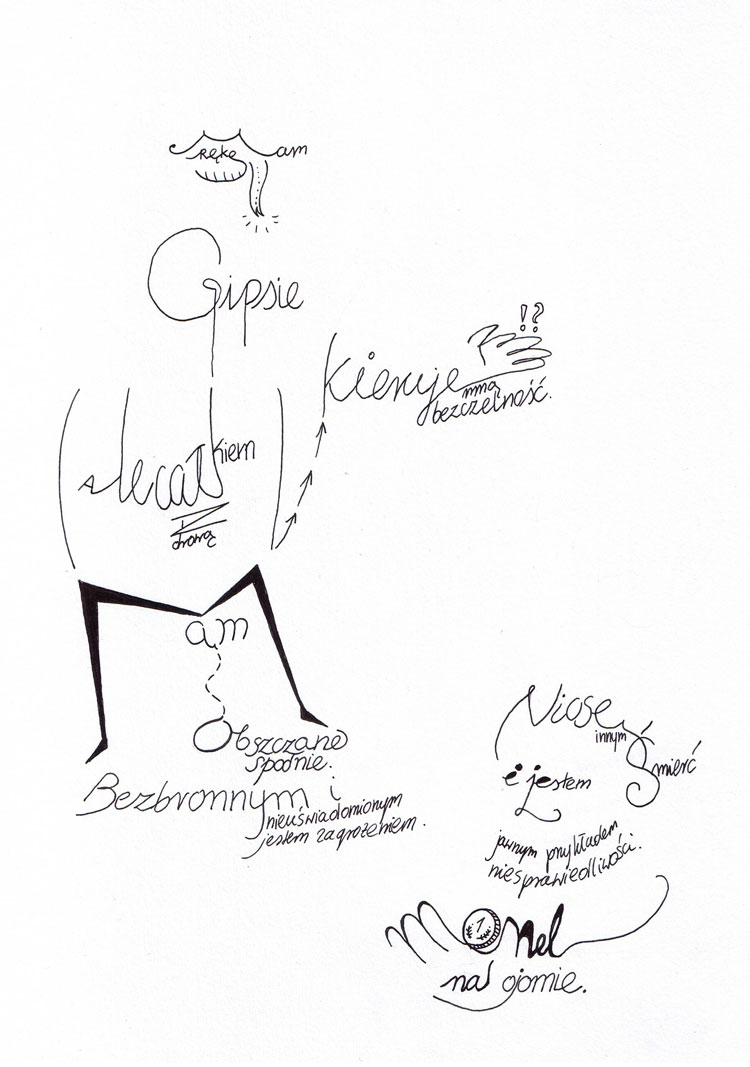 Rękę am
Gipsie
!?
Kieruje
mną
bezczelność.
A lecał kiem
Z
drową
am
Obszczane
spodnie.
Bezbronnym i
nieuświadomionym
jestem zagrożeniem.
Niosę
innym
Śmierć
i jestem
jawnym przykładem
niesprawiedliwości.
MOnel
1
na ojomie.